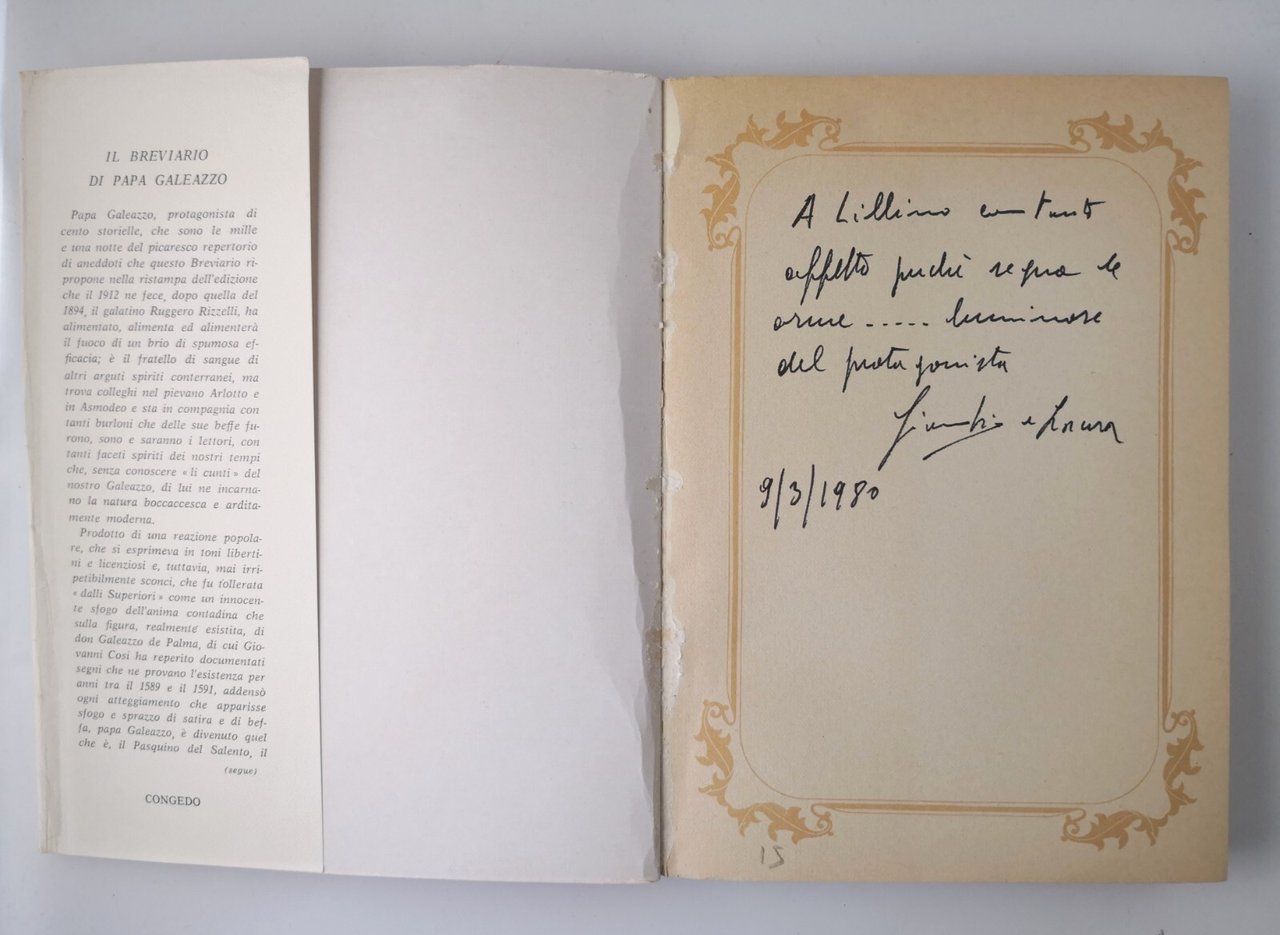 IL BREVIARIO
DI PAPA GALEAZZO
Papa Galeazzo, protagonista di
cento storielle, che sono le mille
e una notte del picaresco repertorio
di aneddoti che questo Breviario ri-
propone nella ristampa dell'edizione
che il 1912 ne fece, dopo quella del
1894, il galatino Ruggero Rizzelli, ha
alimentato, alimenta ed alimenterà
il fuoco di un brio di spumosa ef-
ficacia; è il fratello di sangue di
altri arguti spiriti conterranei, ma
trova colleghi nel pievano Arlotto e
in Asmodeo e sta in compagnia con
tanti burloni che delle sue beffe fu-
rono, sono e saranno i lettori, con
tanti faceti spiriti dei nostri tempi
che, senza conoscere «li cunti» del
nostro Galeazzo, di lui ne incarna-
no la natura boccaccesca e ardita-
mente moderna.
Prodotto di una reazione popola-
re, che si esprimeva in toni liberti-
ni e licenziosi e, tuttavia, mai irri-
petibilmente sconci, che fu tollerata
«dalli Superiori» come un innocen-
te sfogo dell'anima contadina che
sulla figura, realmente esistita, di
don Galeazzo de Palma, di cui Gio-
vanni Cosi ha reperito documentati
segni che ne provano l'esistenza per
anni tra il 1589 e il 1591, addensò
ogni atteggiamento che apparisse
sfogo e sprazzo di satira e di bef-
fa, papa Galeazzo, è divenuto quel
che è, il Pasquino del Salento, il
(segue)
CONGEDO
A Lillino con tanto
affetto perché segua le
orme ..... luminose
del protagonista
e
9/3/1980
15